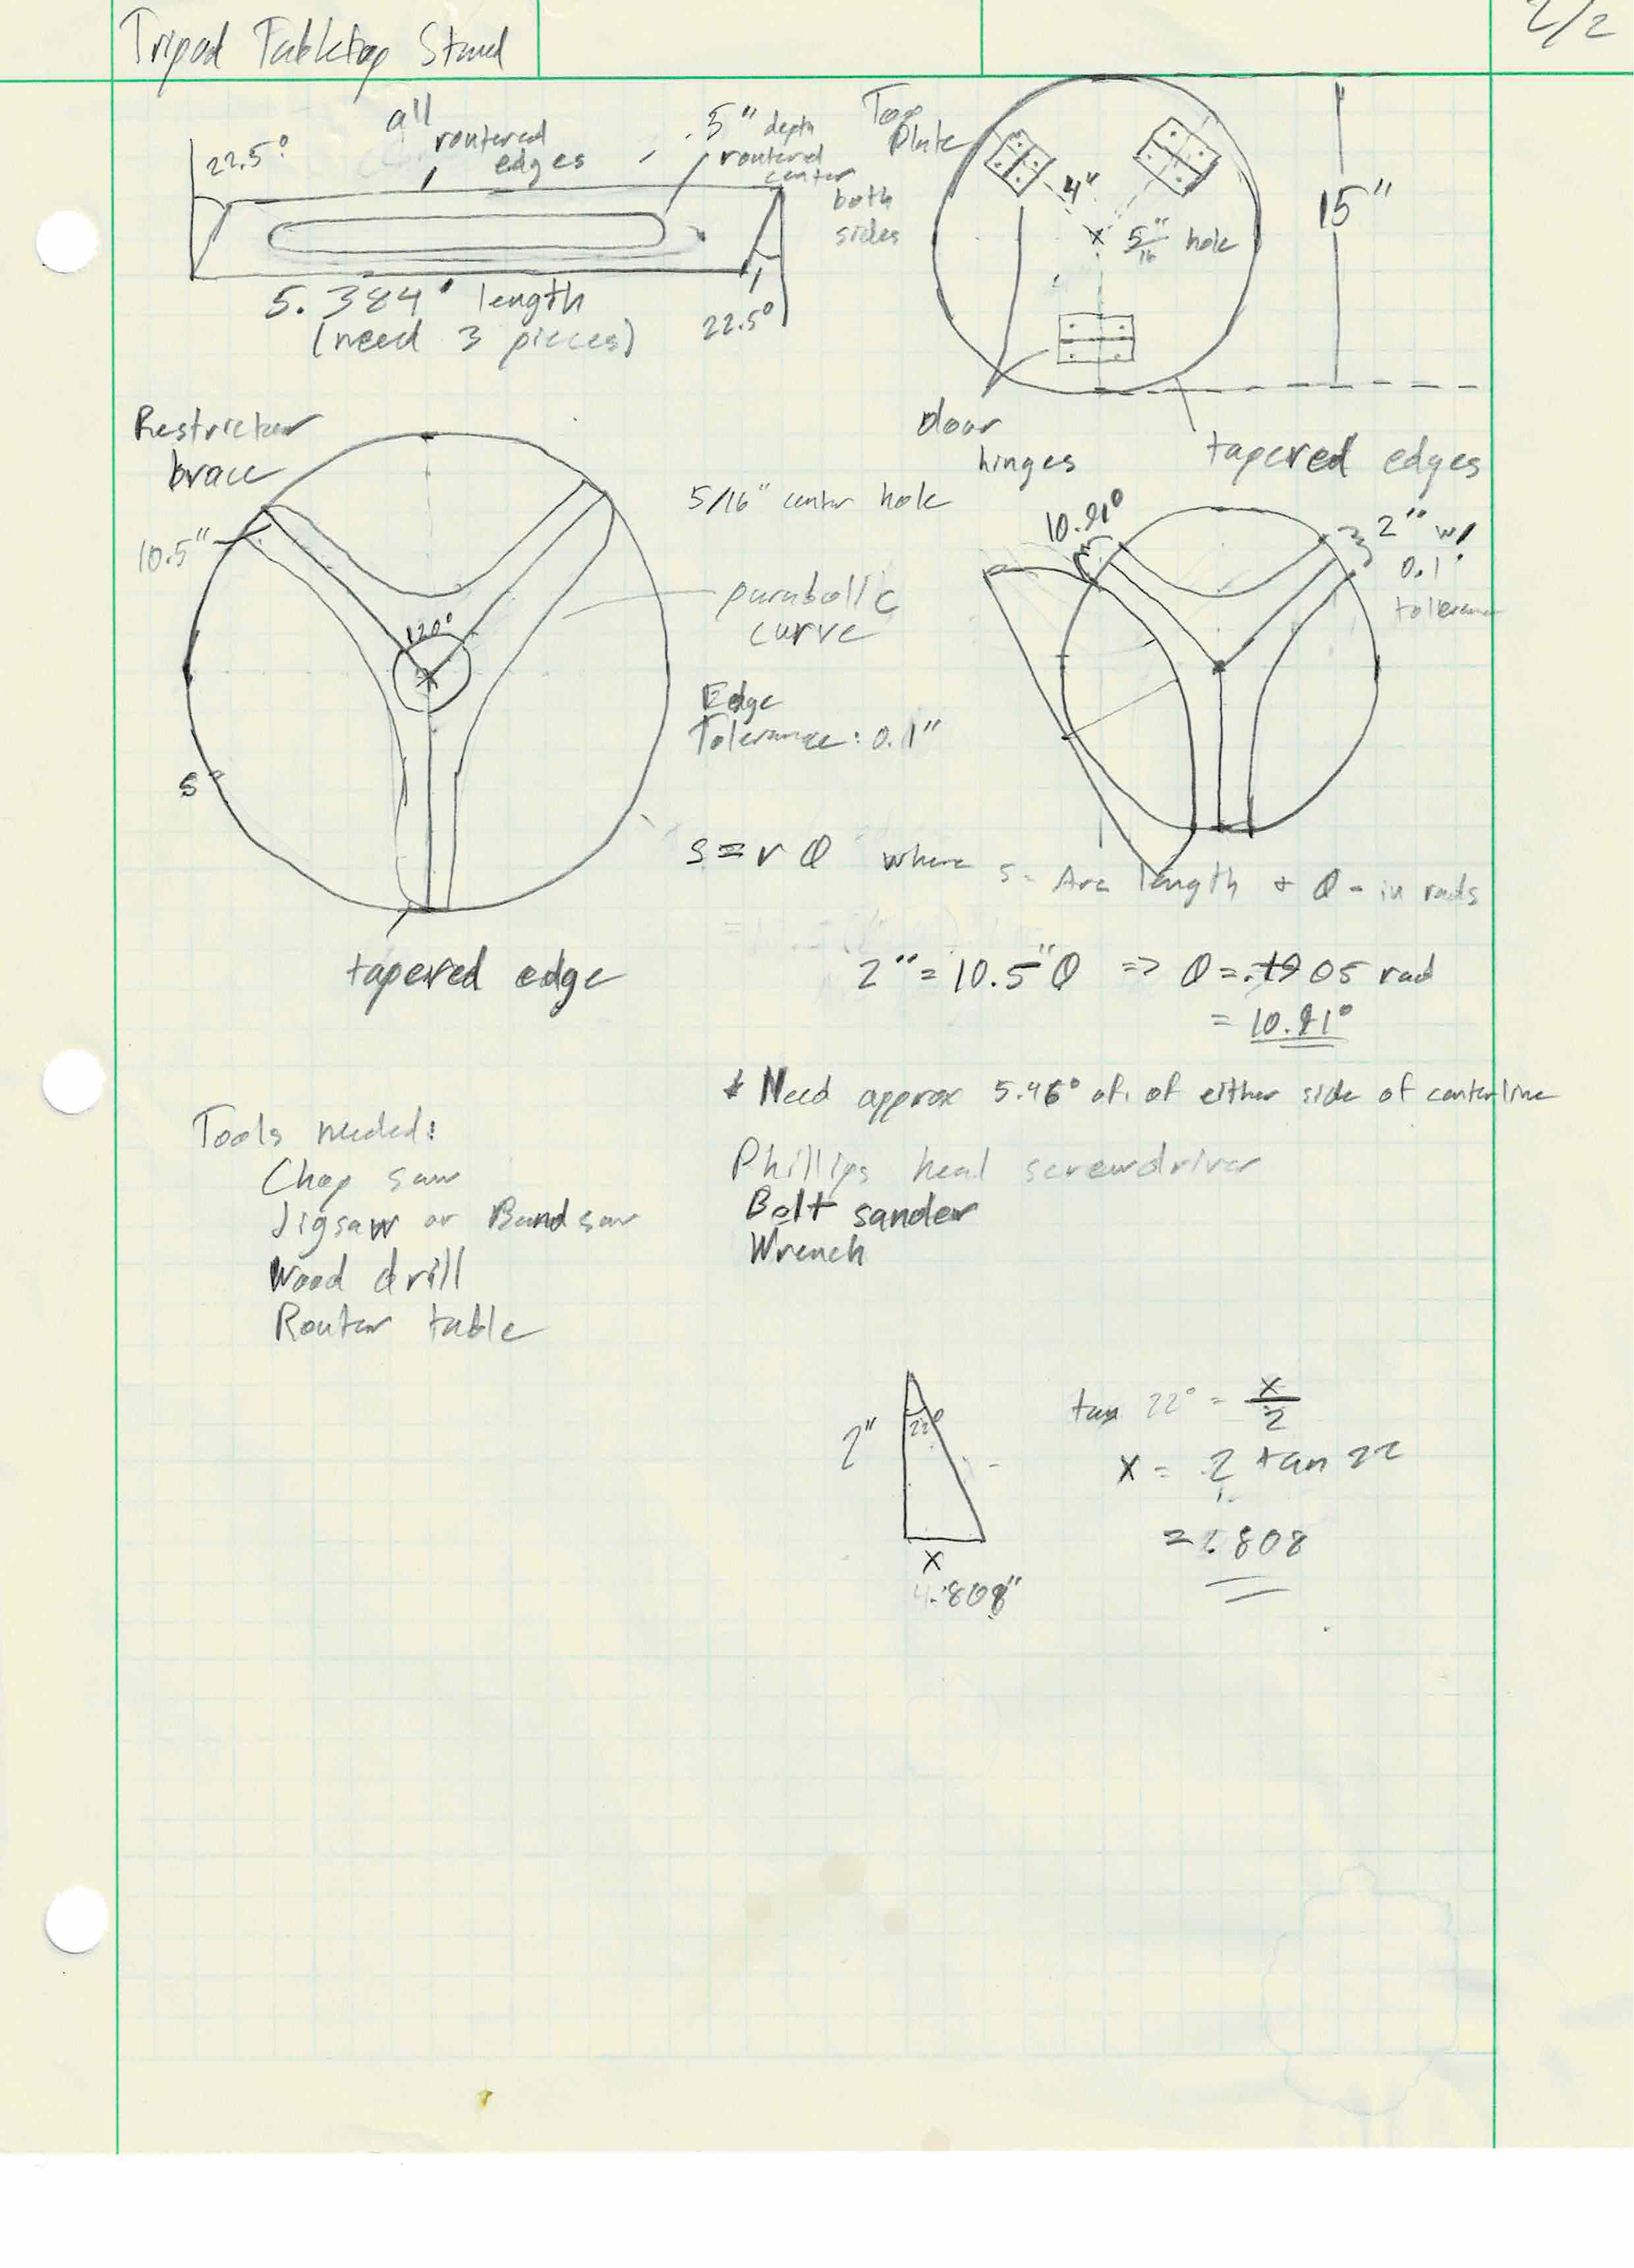 Tripod Tabletop Stand
2/2
22.5°
all
routered
edges
.5" depth
routered
center
both
sides
5.384" length
(need 3 pieces)
22.5°
Top
Plate
4"
5/16" hole
15"
door
hinges
tapered edges
Restrictor
brace
10.5"
120°
s
5/16" center hole
parabolic
curve
Edge
Tolerance: 0.1"
tapered edge
10.91°
2" w/
0.1"
tolerance
s = r θ where s = Arc length + θ - in rads
2" = 10.5" θ => θ = .1905 rad
= 10.91°
* Need approx 5.46° of. of either side of centerline
Tools needed:
Chop saw
Jigsaw or Bandsaw
Wood drill
Router table
Phillips head screwdriver
Belt sander
Wrench
2"
22°
x
.808"
tan 22° = x/2
x = 2 tan 22
= .808